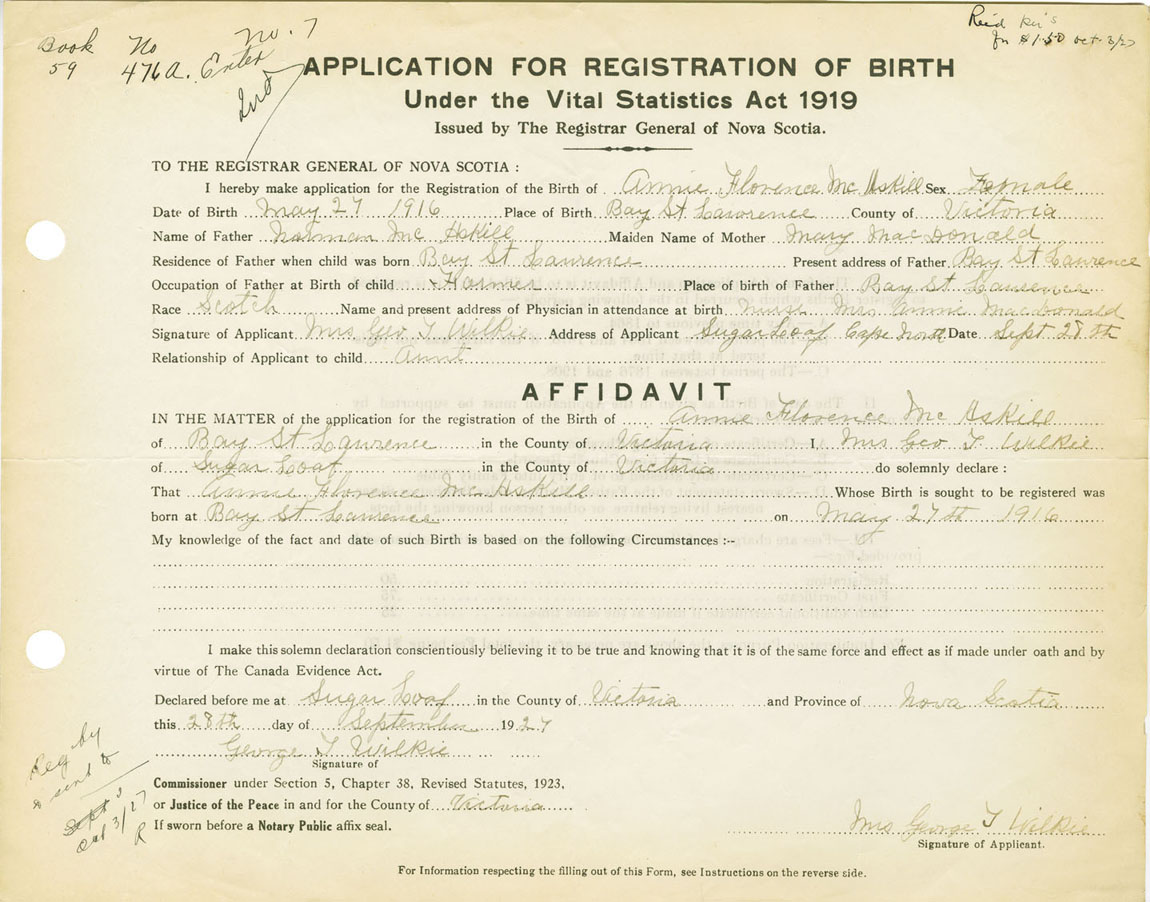 Book No No. 7
59 476A. Enter
Rec'd
for $1.50 Oct 3/27
APPLICATION FOR REGISTRATION OF BIRTH
Under the Vital Statistics Act 1919
Issued by The Registrar General of Nova Scotia.
TO THE REGISTRAR GENERAL OF NOVA SCOTIA :
I hereby make application for the Registration of the Birth of Annie Florence Mc Askill Sex Female
Date of Birth May 27 1916 Place of Birth Bay St Lawrence County of Victoria
Name of Father Norman Mc Askill Maiden Name of Mother Mary MacDonald
Residence of Father when child was born Bay St Laurence Present address of Father Bay St Laurence
Occupation of Father at Birth of child Farmer Place of birth of Father Bay St Laurence
Race Scotch Name and present address of Physician in attendance at birth nurse Mrs Annie MacDonald
Signature of Applicant Mrs Geo T Wilkie Address of Applicant Sugar Loaf Cape North Date Sept 28th
Relationship of Applicant to child Aunt
AFFIDAVIT
IN THE MATTER of the application for the registration of the Birth of Annie Florence Mc Askill
of Bay St Lawrence in the County of Victoria I, Mrs Geo T Wilkie
of Sugar Loaf in the County of Victoria do solemnly declare :
That Annie Florence Mc Askill Whose Birth is sought to be registered was
born at Bay St Laurence on May 27th 1916
My knowledge of the fact and date of such Birth is based on the following Circumstances :--
I make this solemn declaration conscientiously believing it to be true and knowing that it is of the same force and effect as if made under oath and by
virtue of The Canada Evidence Act.
Declared before me at Sugar Loaf in the County of Victoria and Province of Nova Scotia
this 28th day of September 1927
George T Wilkie
Signature of
Commissioner under Section 5, Chapter 38, Revised Statutes, 1923,
or Justice of the Peace in and for the County of Victoria
If sworn before a Notary Public affix seal.
Reg by
& sent to
Sept 3
Oct 3/27
R
Mrs George T Wilkie
Signature of Applicant.
For Information respecting the filling out of this Form, see Instructions on the reverse side.